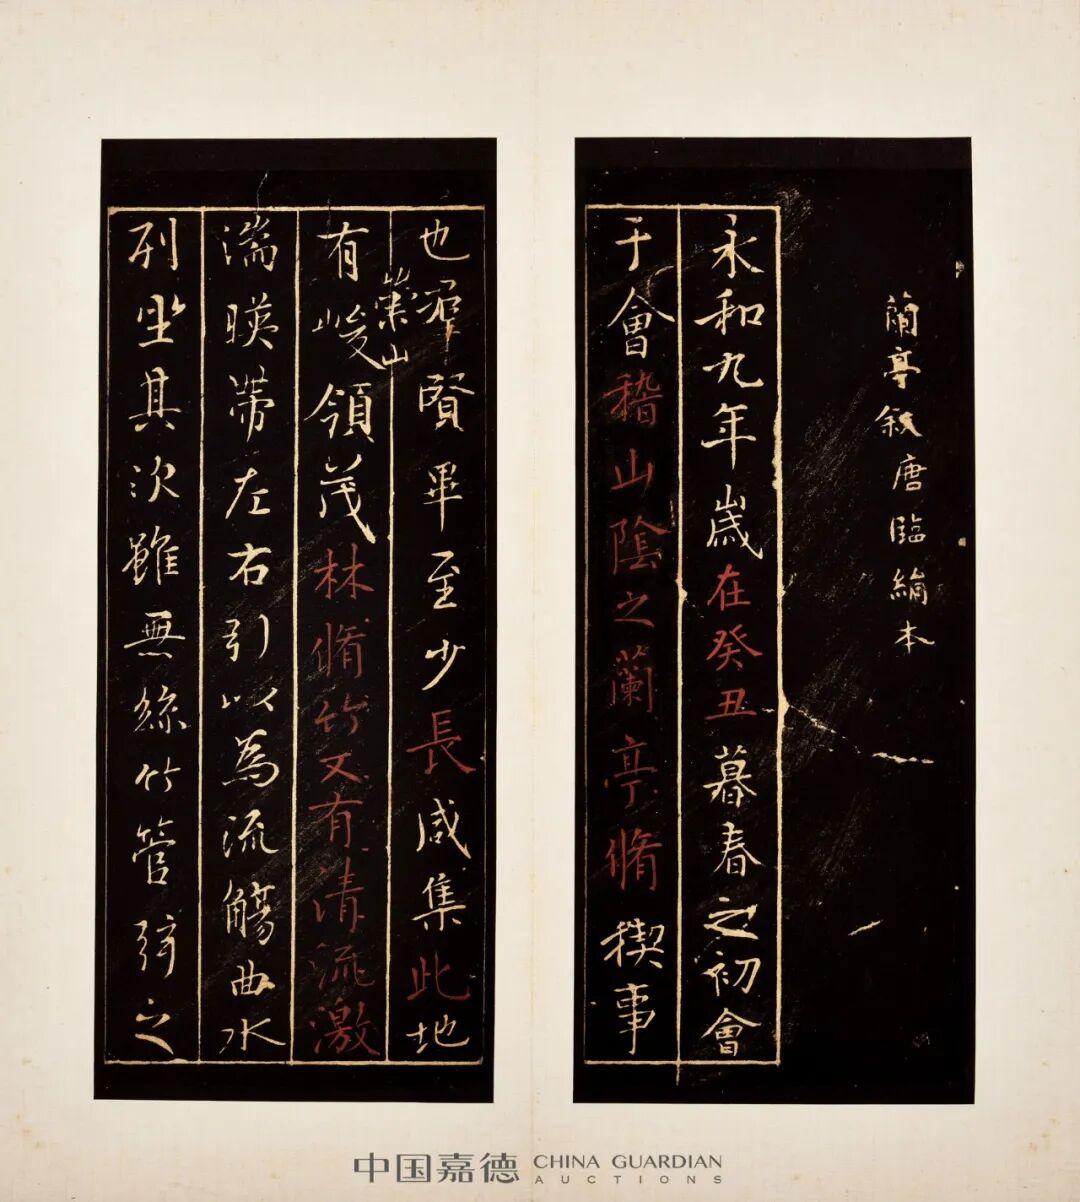 蘭亭叙唐臨絹本
永和九年歲在癸丑暮春之初會
于會稽山陰之蘭亭脩稧事
也羣賢畢至少長咸集此地
有崇山峻領茂林脩竹又有清流激
湍暎帶左右引以為流觴曲水
列坐其次雖無絲竹管弦之
中国嘉德 CHINA GUARDIAN
AUCTIONS